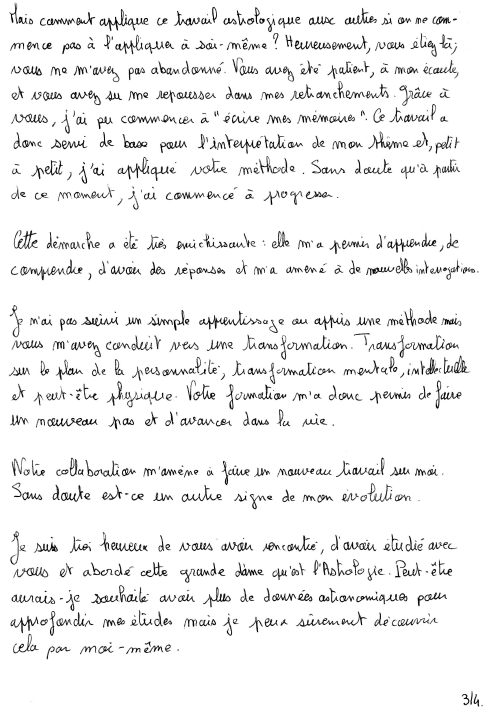 Mais comment applique ce travail astrologique aux autres si on ne com-
mence pas à l'appliquer à soi-même ? Heureusement, vous étiez là ;
vous ne m'avez pas abandonné. Vous avez été patient, à mon écoute,
et vous avez su me repousser dans mes retranchements. Grâce à
vous, j'ai pu commencer à "écrire mes mémoires". Ce travail a
donc servi de base pour l'interprétation de mon thème et, petit
à petit, j'ai appliqué votre méthode. Sans doute qu'à partir
de ce moment, j'ai commencé à progresser.
Cette démarche a été très enrichissante : elle m'a permis d'apprendre, de
comprendre, d'avoir des réponses et m'a amené à de nouvelles interrogations.
Je n'ai pas suivi un simple apprentissage ou appris une méthode mais
vous m'avez conduit vers une transformation. Transformation
sur le plan de la personnalité, transformation mentale, intellectuelle
et peut-être physique. Votre formation m'a donc permis de faire
un nouveau pas et d'avancer dans la vie.
Notre collaboration m'amène à faire un nouveau travail sur moi.
Sans doute est-ce un autre signe de mon évolution.
Je suis très heureux de vous avoir rencontré, d'avoir étudié avec
vous et abordé cette grande dame qu'est l'Astrologie. Peut-être
aurais-je souhaité avoir plus de données astronomiques pour
approfondir mes études mais je peux sûrement découvrir
cela par moi-même.
3/4.